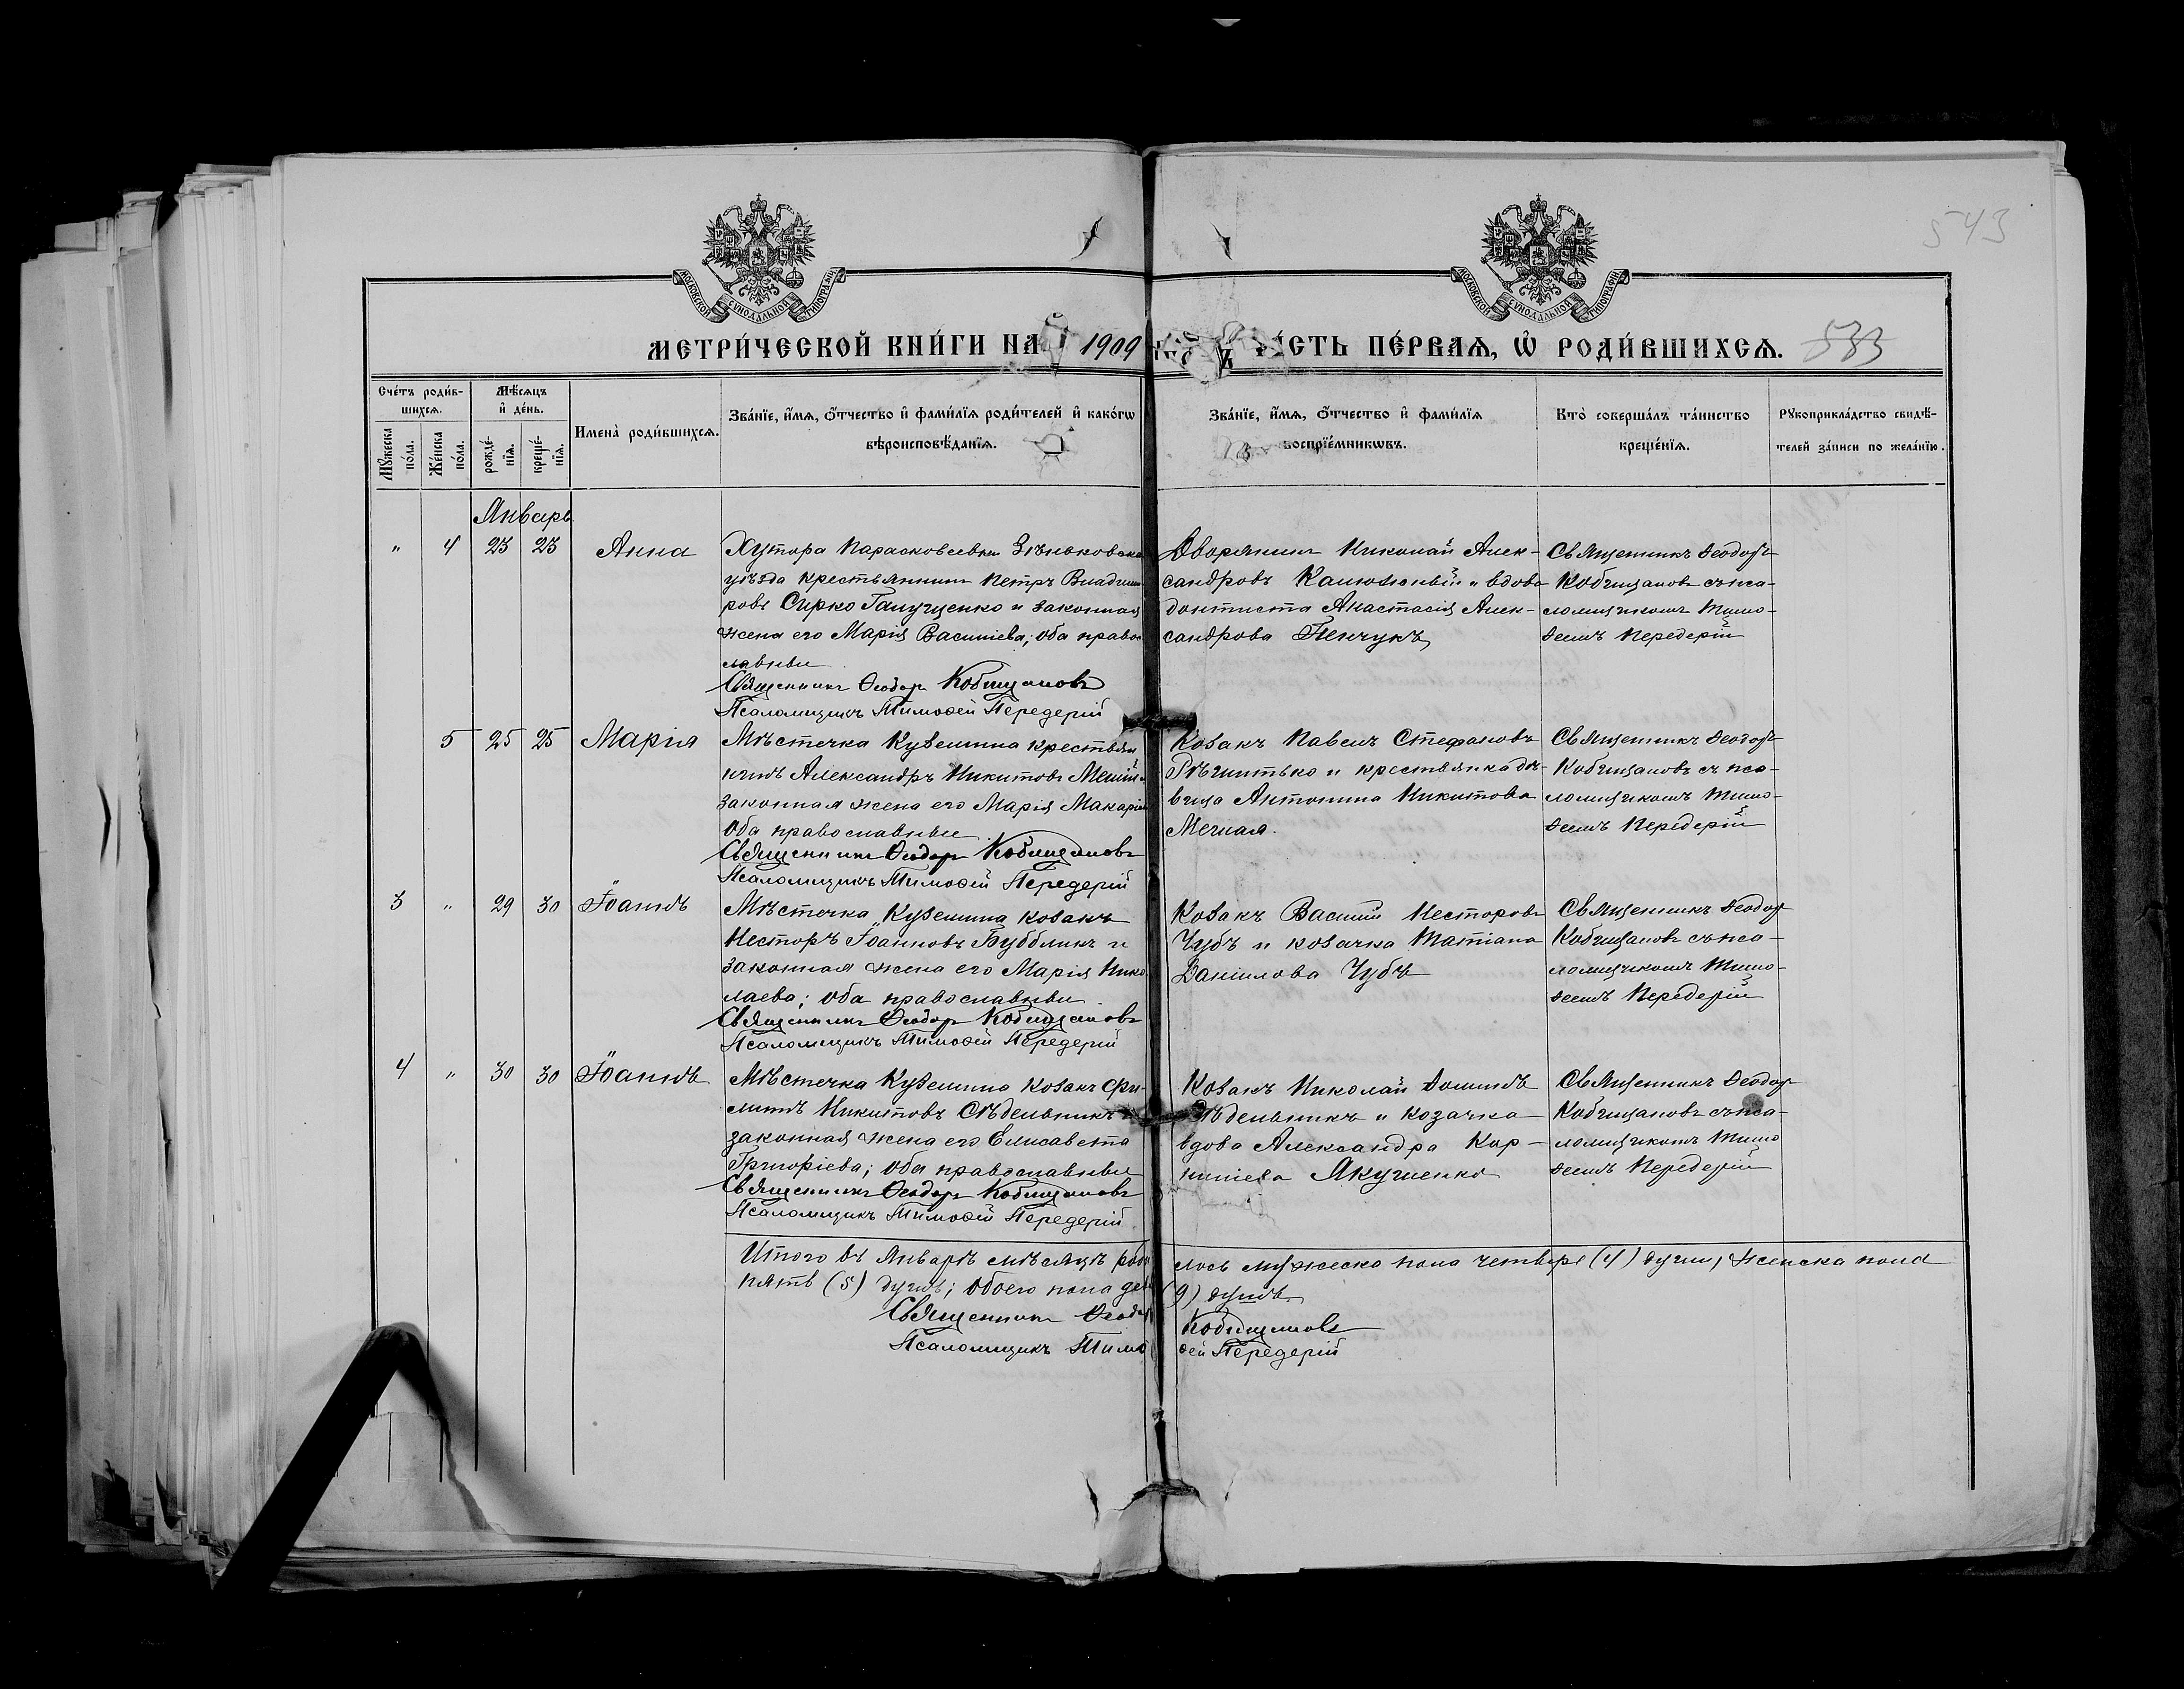 543
МОСКОВСКОЙ СУНОДАЛЬНОЙ ТИПОГРАФІИ
МОСКОВСКОЙ СУНОДАЛЬНОЙ ТИПОГРАФІИ
МЕТРИ́ЧЕСКОЙ КНИ́ГИ НА 1909 ГО́ДЪ ЧА́СТЬ ПЕ́РВАЯ, Ѡ҆ РОДИ́ВШИХСЯ. 533
Сче́тъ роди́вшихся.
Мꙋ́жеска по́ла.
Же́нска по́ла.
Мѣ́сяцъ и҆ де́нь.
рожде́нїя.
креще́нїя.
Имена̀ роди́вшихся.
Зва́нїе, и҆́мя, ѻ҆́тчество и҆ фами́лїя роди́телей и҆ како́гѡ
вѣроисповѣ́данїя.
Зва́нїе, и҆́мя, ѻ҆́тчество и҆ фами́лїя
воспрїе́мникѡвъ.
Кто̀ соверша́лъ та́инство
креще́нїя.
Рꙋкоприкла́дство свидѣ́-
телей за́писи по жела́нїю.
Январь
" 4 23 23 Анна
Хутора Парасковеевки Зѣньковскаго
уѣзда крестьянинъ Петръ Владимі
ровъ Сирко Галущенко и законная
жена его Марія Василіева; оба право
славные
Священникъ Ѳеодоръ Кобищановъ
Псаломщикъ Тимоѳей Передерій
Дворянинъ Николай Алек-
сандровъ и вдова
дантиста Анастасія Алек-
сандрова Пенчукъ
Священникъ Ѳеодоръ
Кобищановъ съ пса-
ломщикомъ Тимо-
ѳеемъ Передерій
5 25 25 Марія
Мѣстечка Куземина крестьян
нинъ Александръ Никитовъ
законная жена его Марія Макаріева
Оба православные
Священникъ Ѳеодоръ Кобищановъ
Псаломщикъ Тимоѳей Передерій
Козакъ Павелъ Стефановъ
и крестьянка дѣ-
вица Антонина Никитова

Священникъ Ѳеодоръ
Кобищановъ съ пса-
ломщикомъ Тимо-
ѳеемъ Передерій
3 " 29 30 Іоаннъ
Мѣстечка Куземина козакъ
Несторъ Іоанновъ Бубликъ и
законная жена его Марія Нико
лаева; оба православные
Священникъ Ѳеодоръ Кобищановъ
Псаломщикъ Тимоѳей Передерій
Козакъ Василій Несторовъ
Чубъ и козачка Татіана
Даніилова Чубъ
Священникъ Ѳеодоръ
Кобищановъ съ пса-
ломщикомъ Тимо-
ѳеемъ Передерій
4 " 30 30 Іоаннъ
Мѣстечка Куземина козакъ Фи-
липпъ Никитовъ Сѣдельникъ и
законная жена его Елисавета
Григоріева; оба православные
Священникъ Ѳеодоръ Кобищановъ
Псаломщикъ Тимоѳей Передерій
Козакъ Николай Ѳоминъ
Сѣдельникъ и козачка
вдова Александра Кор-
ниліева Якушенко
Священникъ Ѳеодоръ
Кобищановъ съ пса-
ломщикомъ Тимо
ѳеемъ Передерій
Итого въ Январѣ мѣсяцѣ роди лось мужеска пола четверо (4) души, женска пола
пять (5) душъ; обоего пола дев (9) душъ
Священникъ Ѳеодоръ Кобищановъ
Псаломщикъ Тимоѳей Передерій